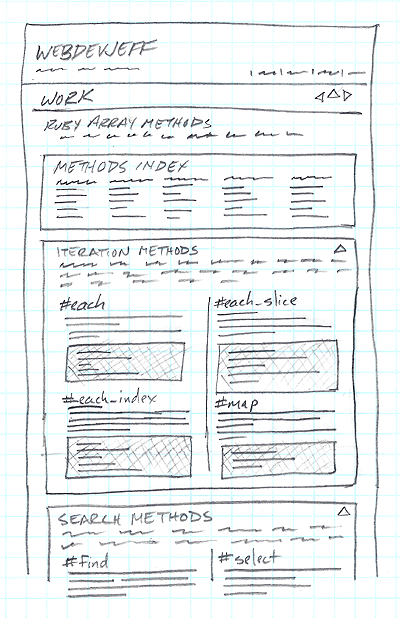 WEBDEVJEFF
WORK
RUBY ARRAY METHODS
METHODS INDEX
ITERATION METHODS
#each
#each_slice
#each_index
#map
SEARCH METHODS
#find
#select